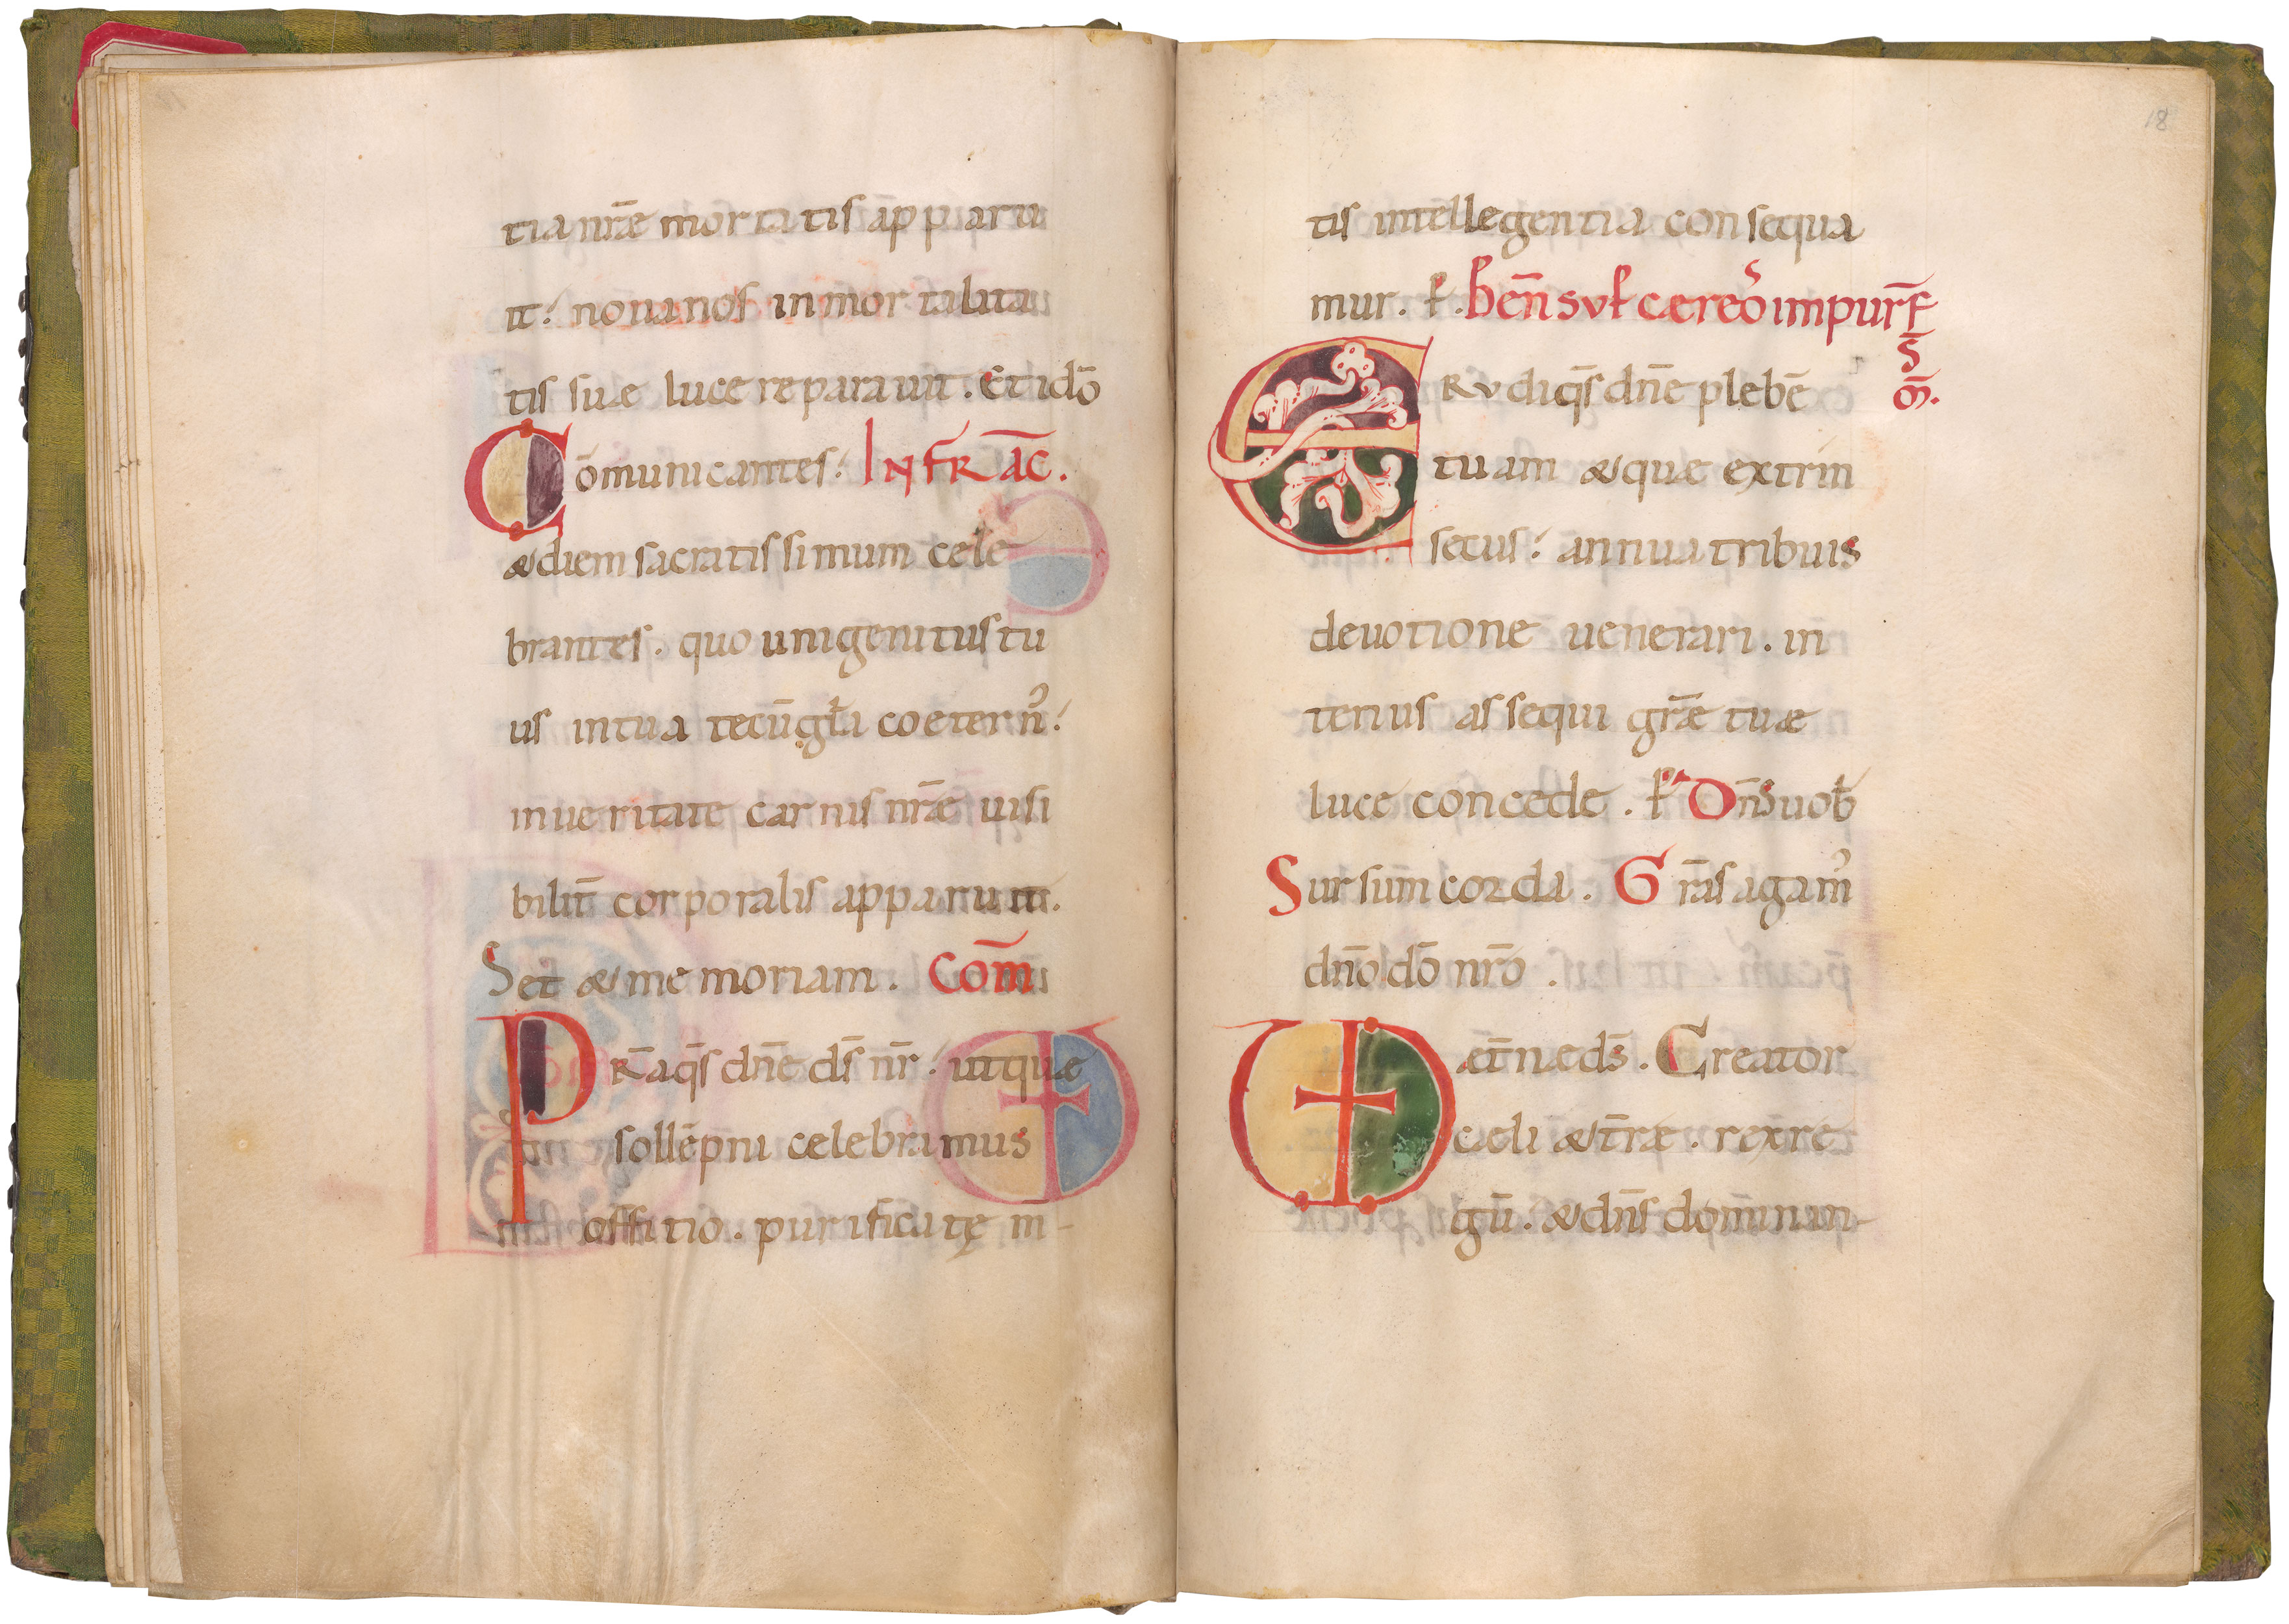 tia nr̄æ mortatis apparu
it! noua nos in mortalita
tis suæ luce reparauit. Et idō
Cōmunicantes! INFRA AC̄.
& diem sacratissimum cele
brantes. quo unigenitus tu
us in tua tecū gl̄i coetern᾽!
in ueritate carnis nr̄æ uisi
bilit̄ corporalis apparuit.
Set & memoriam. Com̄
PRA q̄s dn̄e ds̄ nr̄! ut quæ
sollēpni celebramus
offitio. purificatę m-
18
tis intellegentia consequa
mur. p̄. ben̄ svp̄ cæreō impurif̄
S̄
Ervdi q̄s dn̄e plebē m̄.
tuam & quæ extrin
secus! annua tribuis
deuotione uenerari. in
tenus assequi gr̄æ tuæ
luce concede. p̄ Dn̄s uob̄
Sursum corda. Gr̄as agam᾽
dn̄o dō nr̄o.
æt̄næ ds̄. Creator
cæli & t̄ræ. rex re
gū. & dn̄s dominan-